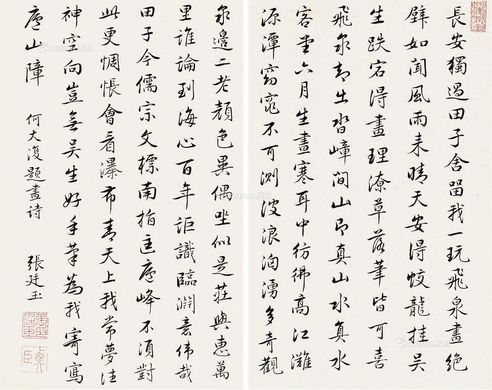 長安獨過田子舍留我一玩飛泉畫絕
壁如聞風雨来晴天安得蛟龍挂吴
生跌宕得畫理潦草落筆皆可喜
飛泉却出沓嶂間山即真山水真水
客堂六月生晝寒耳中彷彿高江灘
源潭窈窕不可測波浪洶湧多奇觀
泉邊二老顔色異偶坐似是莊與惠萬
里誰論到海心百年詎識臨淵意偉哉
田子今儒宗文標南指匡廬峰不須對
此更惆悵會看瀑布青天上我常夢往
神空向豈無吴生好手筆為我寄寫
廬山障 何大復題畫詩 張廷玉